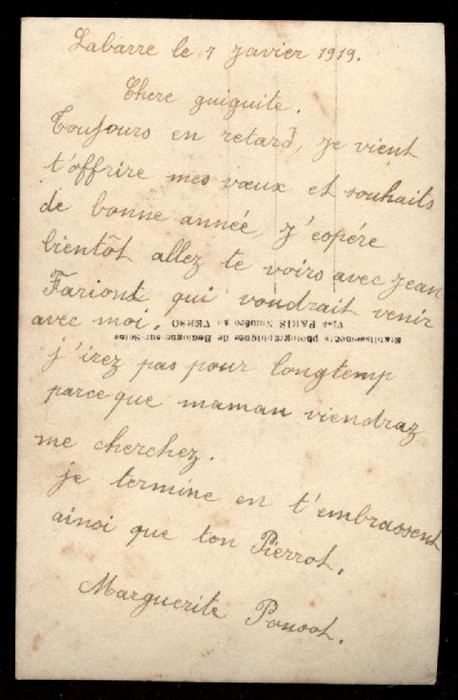 Labarre le 7 Javier 1919.
Chere guiguite.
Toujours en retard, je vient
t'offrire mes vœux et souhaits
de bonne année, j'espére
bientôt allez te voirs avec Jean
Fariont qui voudrait venir
avec moi.
Etablissements photographiques de Boulogne-sur-Seine
Visé PARIS Numéro au VERSO
j'irez pas pour longtemp
parceque maman viendraz
me cherchez.
je termine en t'embrassent
ainsi que ton Pierrot.
Marguerite